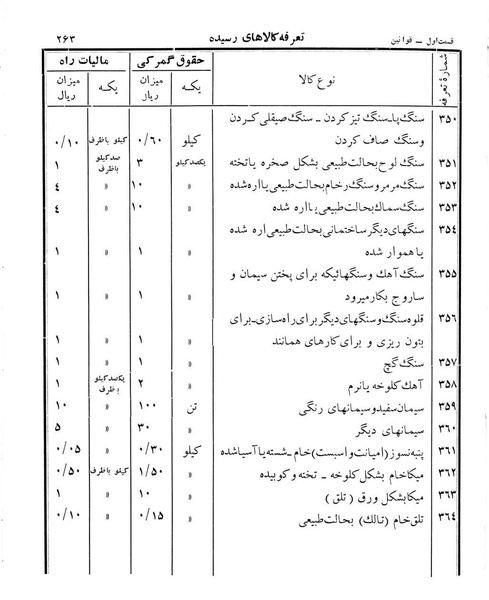 قسمت اول – قوانین تعرفه کالاهای رسیده ۲۶۳
شمارهٔ تعرفه نوع کالا حقوق گمرکی مالیات راه
یکه میزان ریال یکه میزان ریال
۳۵۰ سنگ پا – سنگ تیز کردن – سنگ صیقلی کردن
و سنگ صاف کردن کیلو ۰/۶۰ کیلو باظرف ۰/۱۰
۳۵۱ سنگ لوح بحالت طبیعی بشکل صخره یا تخته یکصد کیلو ۳ صد کیلو باظرف ۱
۳۵۲ سنگ مرمر و سنگ رخام بحالت طبیعی یا اره شده » ۱۰ » ٤
۳۵۳ سنگ سماك بحالت طبیعی یا اره شده » ۱۰ » ٤
۳۵٤ سنگهای دیگر ساختمانی بحالت طبیعی اره شده
یا هموار شده » ۱ » ۱
۳۵۵ سنگ آهك و سنگهائیکه برای پختن سیمان و
ساروج بکار میرود » ۱ » ۱
۳۵۶ قلوه سنگ و سنگهای دیگر برای راه سازی – برای
بتون ریزی و برای کارهای همانند » ۱ » ۱
۳۵۷ سنگ گچ » ۱ » ۱
۳۵۸ آهك کلوخه یا نرم » ۲ یکصد کیلو باظرف ۱
۳۵۹ سیمان سفید و سیمانهای رنگی تن ۱۰۰ » ۱۰
۳۶۰ سیمانهای دیگر » ۳۰ » ۵
۳۶۱ پنبه نسوز (امیانت و اسبست) خام – شسته یا آسیا شده کیلو ۰/۳۰ » ۰/۰۵
۳۶۲ میکا خام بشکل کلوخه – تخته و کوبیده » ۱/۵۰ کیلو باظرف ۰/۵۰
۳۶۳ میکا بشکل ورق ( تلق ) » ۱۰ » ۱
۳۶٤ تلق خام (تالك) بحالت طبیعی » ۰/۱۵ » ۰/۱۰